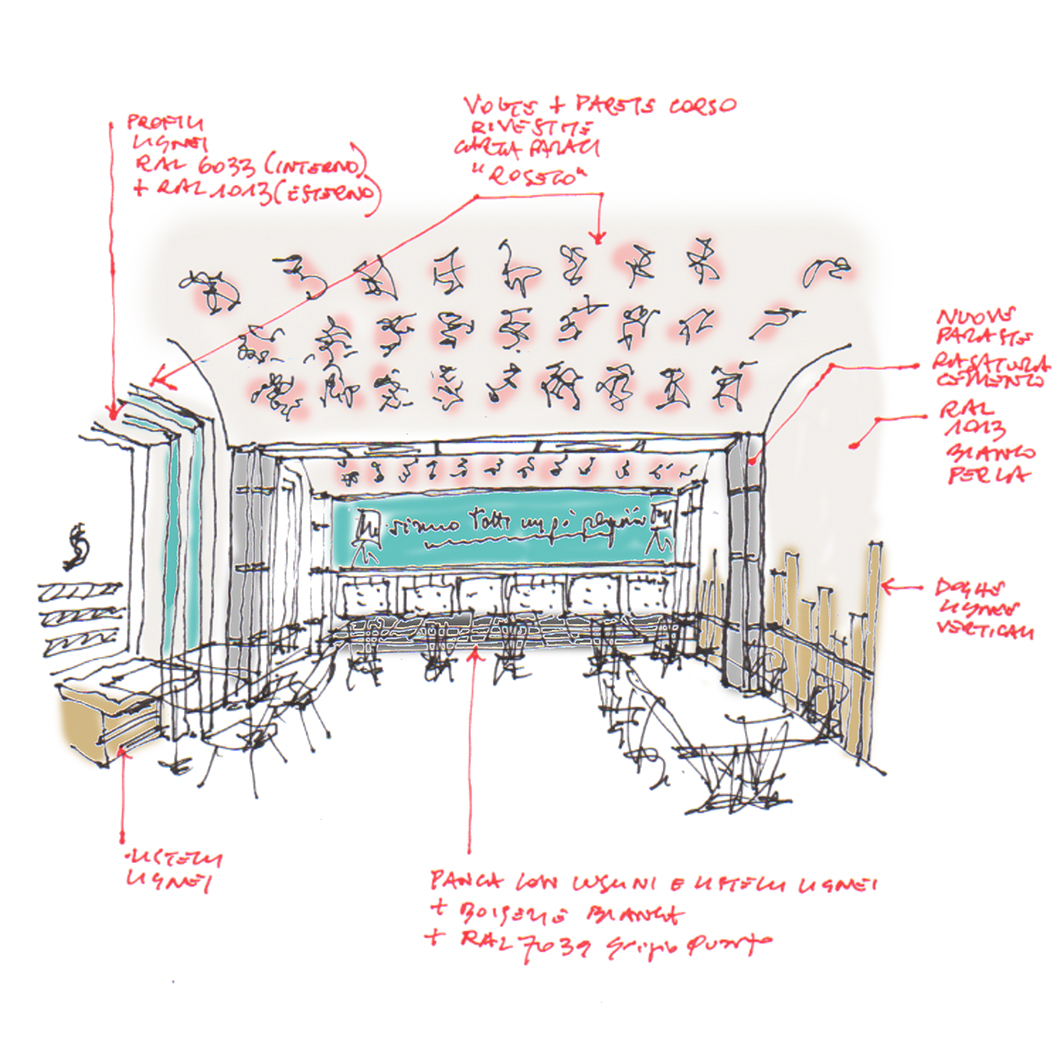 PROFILI
LIGNEI
RAL 6033 (INTERNO)
+ RAL 1013 (ESTERNO)
VOLTE + PARETE CORSO
RIVESTITE
CARTA PARATI
"ROSETO"
NUOVE
PARASTE
RASATURA
CEMENTO
RAL
1013
BIANCO
PERLA
siamo tutti un pò
DOGHE
LIGNEE
VERTICALI
LISTELLI
LIGNEI
PANCA CON CUSCINI E LISTELLI LIGNEI
+ BOISERIE BIANCA
+ RAL 7039 Grigio Quarzo